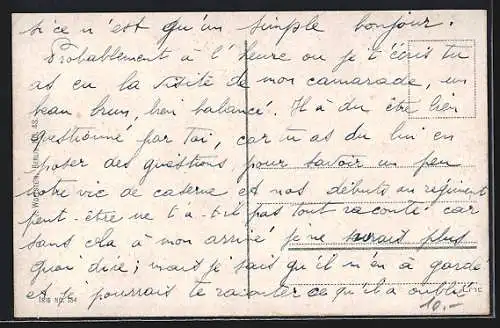 si ce n'est qu'un simple bonjour.
Probablement à l'heure ou je t'écris tu
as eu la visite de mon camarade, un
beau brun, bien balancé. Il a du être bien
questionné par toi, car tu as du lui en
poser des questions pour savoir un peu
notre vie de caserne et nos débuts au régiment
peut-être ne t'a-t-il pas tout raconté car
sans cela à mon arrivé je ne saurais plus
quoi dire; mais je sais qu'il m'en à gardé
et je pourrais te raconter ce qu'il a oublié
10.-
IRIS NO. 154
BERLIN